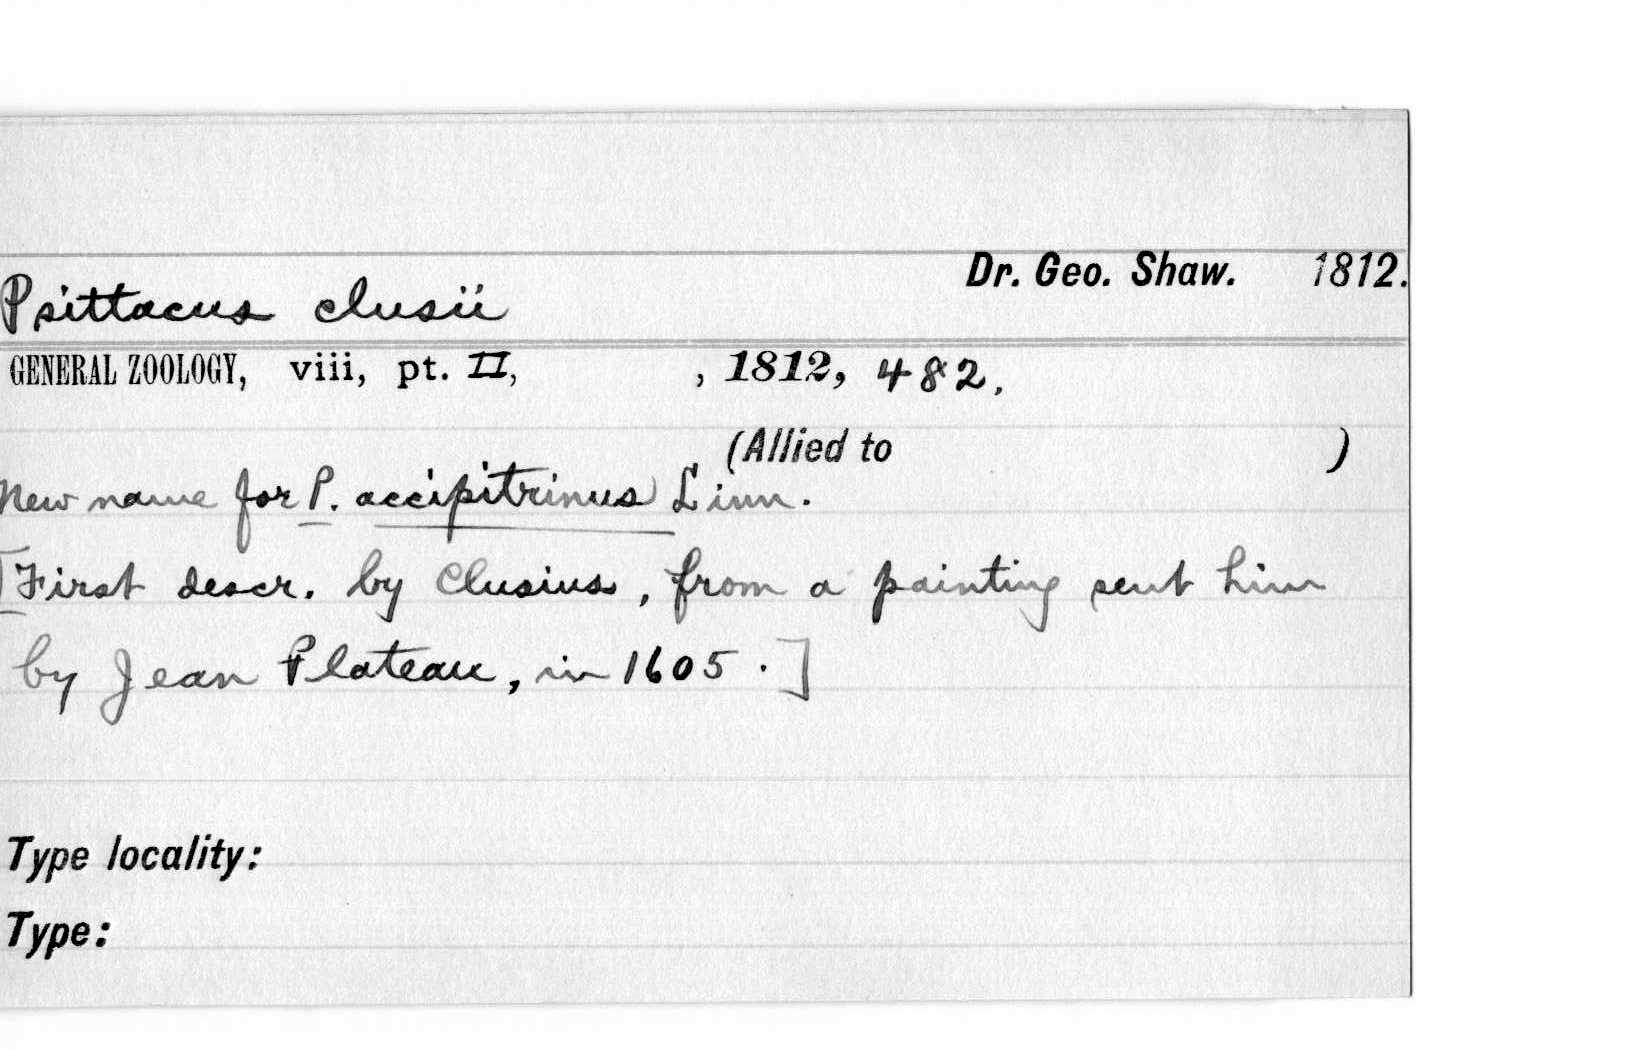 Dr. Geo. Shaw. 1812.
Psittacus clusii
GENERAL ZOOLOGY, viii, pt. II, , 1812, 482.
(Allied to )
New name for P. accipitrinus Linn.
[First descr. by Clusius, from a painting sent him
by Jean Plateau, in 1605.]
Type locality:
Type: